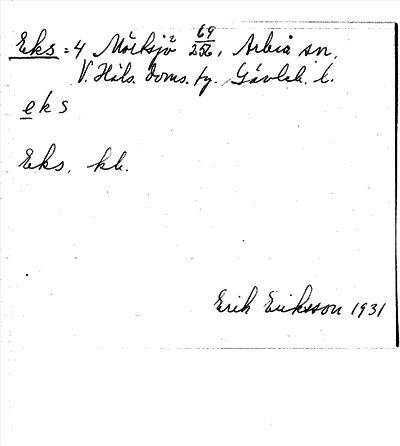 Eks = 4 Mörksjö 2 69/256, Arbrå sn,
V. Häls. doms. fg. Gävleb. l.
eks
Eks, kb.
Erik Eriksson 1931